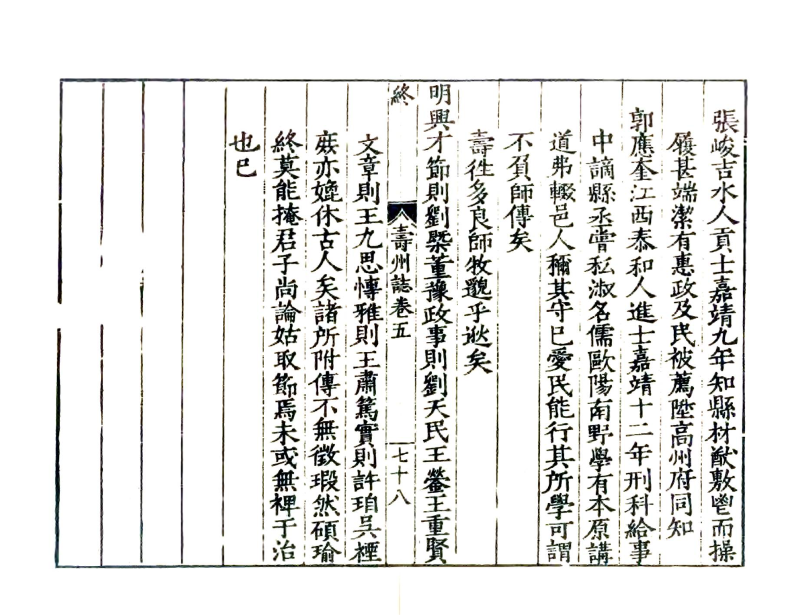 張峻吉水人貢士嘉靖九年知縣材猷敷鬯而操
履甚端潔有惠政及民被薦陞髙州府同知
郭應奎江西泰和人進士嘉靖十二年刑科給事
中謫縣丞甞私淑名儒歐陽南野學有本原講
道弗輟邑人稱其守已愛民能行其所學可謂
不負師傳矣
壽徃多良師牧
乎
矣
明興才節則劉槩董豫政事則劉天民王鎣王重賢
終
壽州誌卷五
七十八
文章則王九思愽雅則王肅篤實則許珀吳檟
庶亦媲休古人矣諸所附傳不無微瑕然碩瑜
終莫能掩君子尚論姑取節焉未或無裨于治
也已